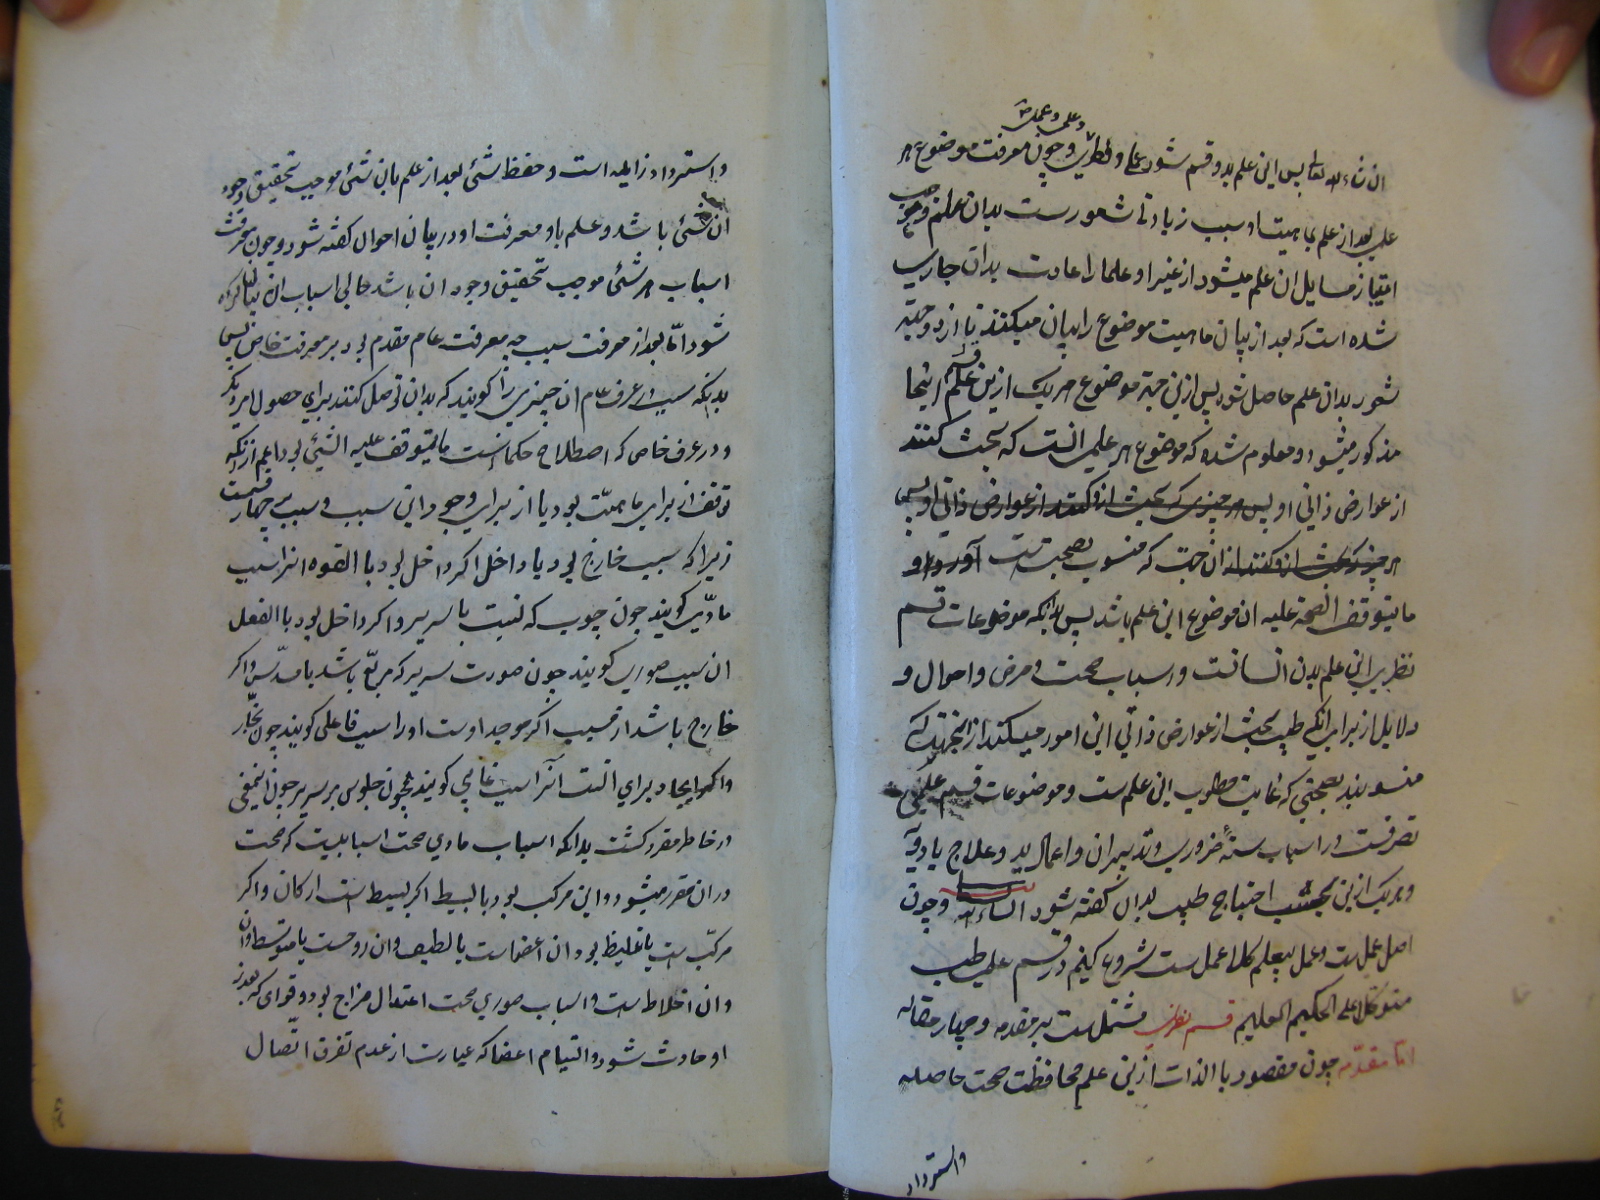 و علمی و عملی
ان شاء الله تعالی پس این علم بدو قسم شود عملی و نظری و چون معرفت موضوع هر
علم بعد از علم بماهیت او سبب زیادتی شعورست بدان علم و موجب
امتیاز مسایل ان علم میشود از غیر او علما را عادت بدان جاری
شده است که بعد از بیان ماهیت موضوع را بیان میکنند تا ازدو جهة
شعور بدان علم حاصل شود پس ازین جهة موضوع هر یک ازین قسم علم اینجا
مذکور میشود و معلوم شده که موضوع هر علمی انست که بحث کنند
از عوارض ذاتی او پس هر چیزی که بحث ازو کنند از عوارض ذاتی او پس
هر چیز که بحث ازو کنند از ان جهت که منسوب بصحتست
ما یتوقف الصحة علیه ان موضوع این علم باشد پس بدانکه موضوعات قسم
نظری این علم بدن انسانست و اسباب صحت و مرض و احوال و
دلایل از برای انکه طبیب بحث از عوارض ذاتی این امور میکند از انجهت که
منسوبند بصحتی که غایت مطلوب این علم ست و موضوعات قسم عملی
تصرفست در اسباب ستهٔ ضروری و تدبیر ان و اعمال ید و علاج بادویه
و هریک ازین بحسب احتیاج طبیب بدان کفته شود انشاء الله و چون
اصل عملست و عمل بیعلم کلا عمل ست شروع کنیم در قسم علمی طب
متوکلا علی الحکیم العلیم قسم نظری مشتمل ست بر مقدمه و چهار مقاله
اما مقدمه چون مقصود بالذات ازین علم محافظت صحت حاصله
واسترداد
واسترداد زایله است و حفظ شئی بعد از علم بان شئی موجب تحقیق وجود
ان شئی باشد و علم باو معرفت او در بیان احوال کفته شود و چون معرفت
اسباب هر شئی موجب تحقیق وجود ان باشد حالی اسباب ان بیان کرده
شود اما بعد از معرفت سبب چه معرفت عام مقدم بود بر معرفت خاص پس
بدانکه سبب در عرف عام ان چیزی را کویند که بدان توصل کنند برای حصول امر دیکر
و در عرف خاص که اصطلاح حکماست ما یتوقف علیه الشئی بود اعم از انکه
توقف از برای ماهیت بود یا از برای وجود این سبب و سبب چهار قسمست
زیرا که سبب خارج بود یا داخل اکر داخل بود با القوه انرا سبب
مادی کویند چون چوب که نسبت با سریر و اکر داخل بود با الفعل
ان سبب صوری کویند چون صورت سریر که مربع باشد یا مسدس و اکر
خارج باشد از سبب اکر موجد اوست اورا سبب فاعلی کویند چون نجار
و اکر ایجاد برای انست آنرا سبب غایی کویند چون جلوس بر سریر چون اینمعنی
در خاطر مقرر کشت بدانکه اسباب مادی صحت اسبابیست که صحت
در ان مقرر میشود و این مرکب بود یا بسیط اکر بسیط ست ارکان و اکر
مرکب ست یا غلیظ بود ان اعضاست یا لطیف و ان روحست یا متوسط و ان
و ان اخلاط ست و اسباب صوری صحت اعتدال مزاج بود و قوای که بعد از
او حادث شود و التیام اعضا که عبارت از عدم تفرق اتصال